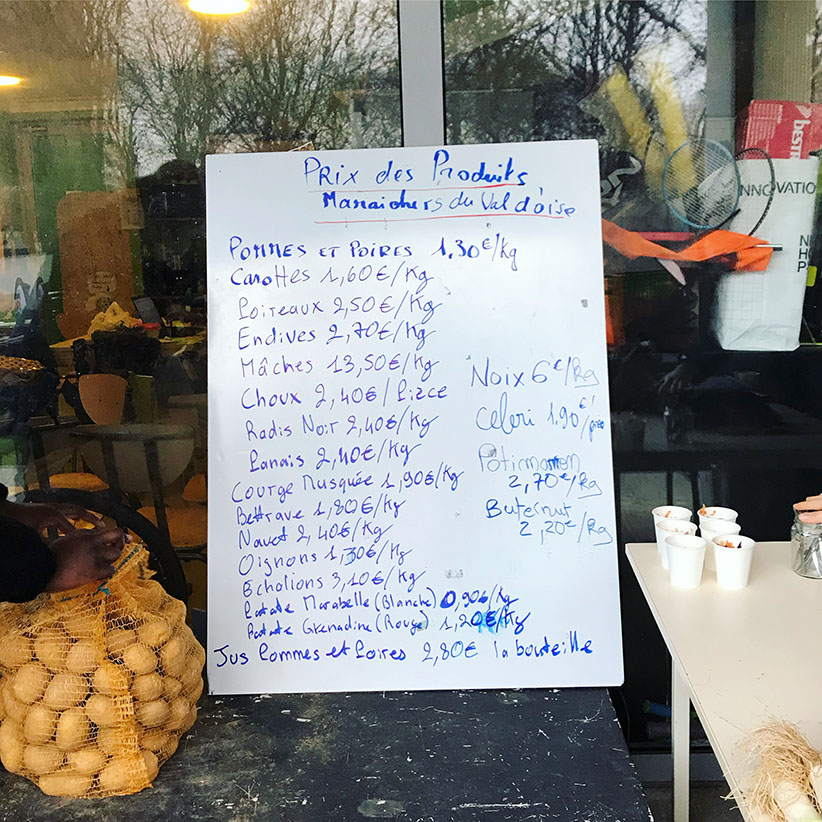 Prix des Produits
Maraichers du Val d'òise
POMMES ET POIRES 1,30€/Kg
Carottes 1,60€/Kg
Poireaux 2,50€/Kg
Endives 2,70€/Kg
Mâches 13,50€/Kg
Choux 2,40€/Pièce
Radis Noir 2,40€/Kg
Panais 2,40€/Kg
Courge Musquée 1,90€/Kg
Bettrave 1,80€/Kg
Navet 2,40€/Kg
Oignons 1,30€/Kg
Echalions 3,10€/Kg
Patate Marabelle (Blanche) 0,90€/Kg
Patate Grenadine (Rouge) 1,20€/Kg
Jus Pommes et Poires 2,80€ la bouteille
Noix 6€/Kg
Celeri 1.90€/pièce
Potimarron
2,70€/Kg
Buternut
2,20€/Kg
INNOVATIO